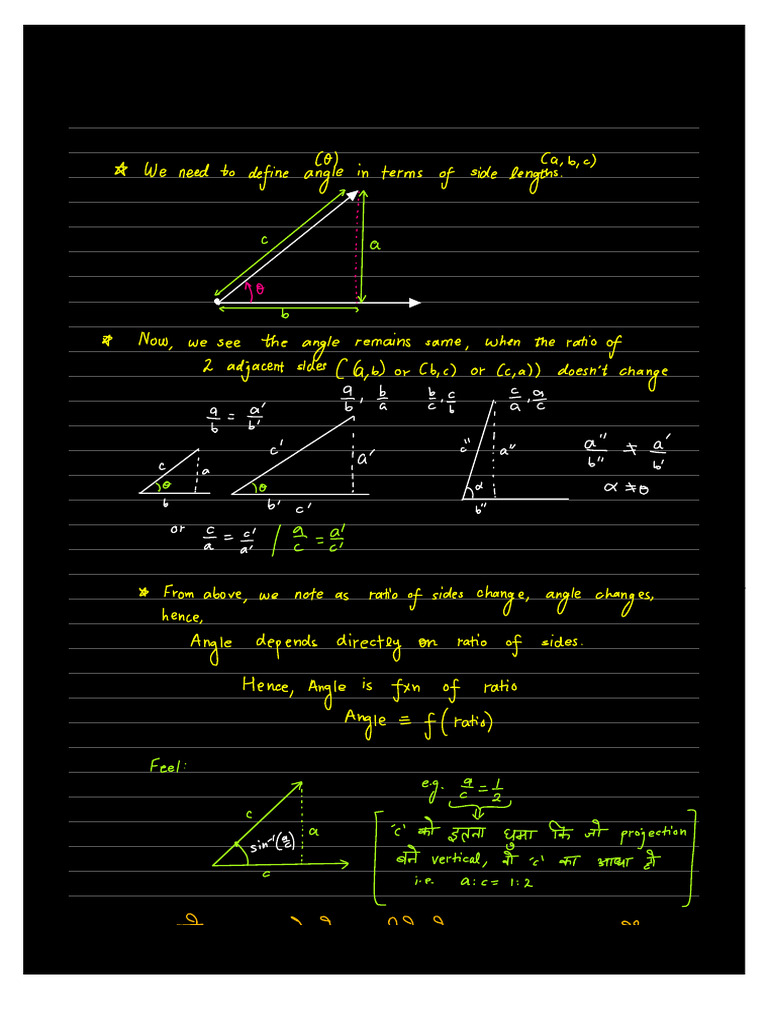 (θ) (a, b, c)
☆ We need to define angle in terms of side lengths.
c
a
θ
b
☆ Now, we see the angle remains same, when the ratio of
2 adjacent sides ((a,b) or (b,c) or (c,a)) doesn't change
a/b, b/a b/c, c/b c/a, a/c
a/b = a'/b'
c a θ b
c' a' θ b' c'
c" a" α b"
a"/b" ≠ a'/b'
α ≠ θ
or c/a = c'/a' / a/c = a'/c'
☆ From above, we note as ratio of sides change, angle changes,
hence,
Angle depends directly on ratio of sides.
Hence, Angle is fxn of ratio
Angle ≡ f(ratio)
Feel:
e.g. a/c = 1/2
⇓
c
a
sin⁻¹(a/c)
c
'c' को इतना घुमा कि जो projection
बने vertical, वो 'c' का आधा हो
i.e. a:c = 1:2